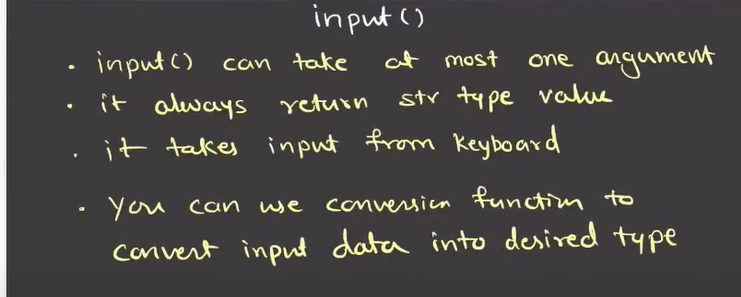 input()
• input() can take at most one argument
• it always return str type value
• it takes input from keyboard
• You can use conversion function to
convert input data into desired type